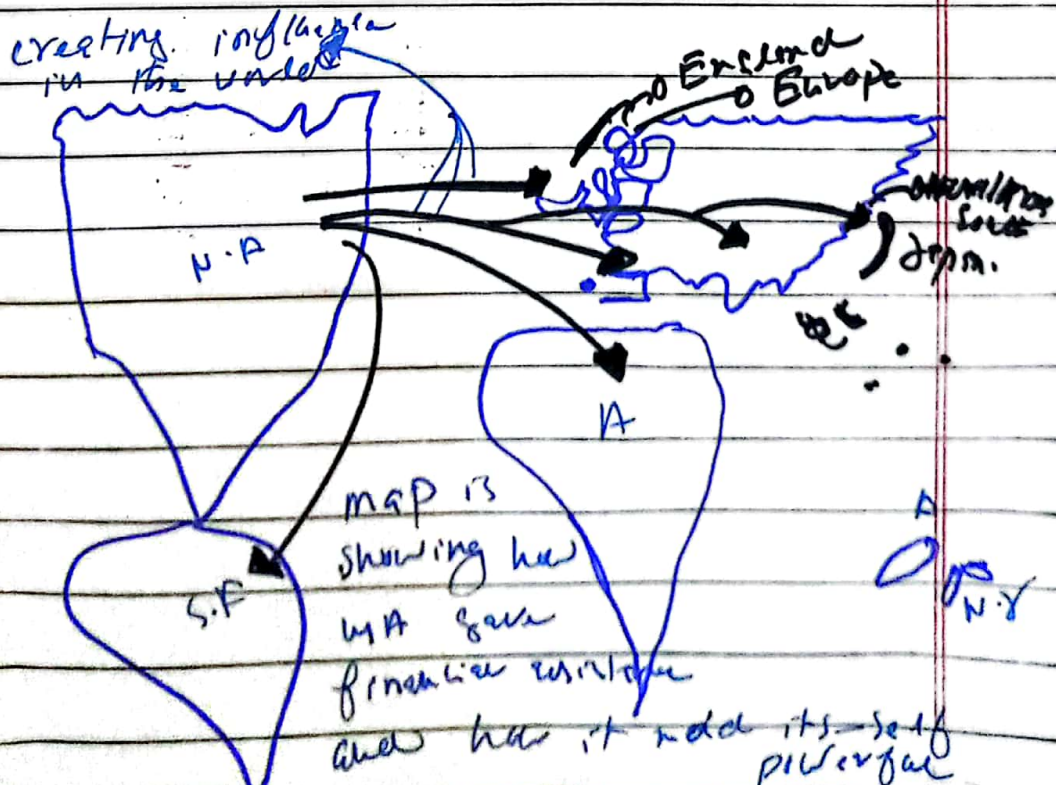 creating influence
in the world
England
Europe
N.A
South
Japan.
A
map is
showing how
USA gave
financial assistance
and how it made its-self
powerful
S.A
A
N.Z